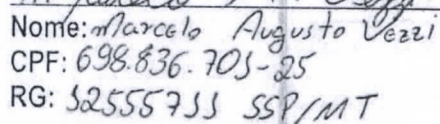 Nome: Marcelo Augusto Vezzi
CPF: 698.836.701-25
RG: 12555711 SSP/MT